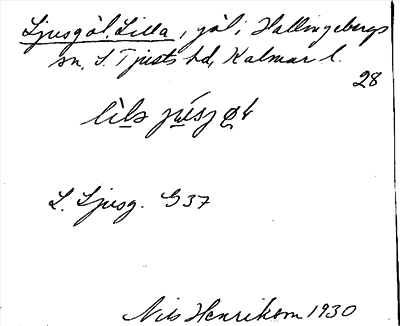 Ljusgöl, Lilla, göl i Hallingebergs
sn, S. Tjusts hd, Kalmar l.
28
L. Ljusg. G37
Nils Henrikson 1930